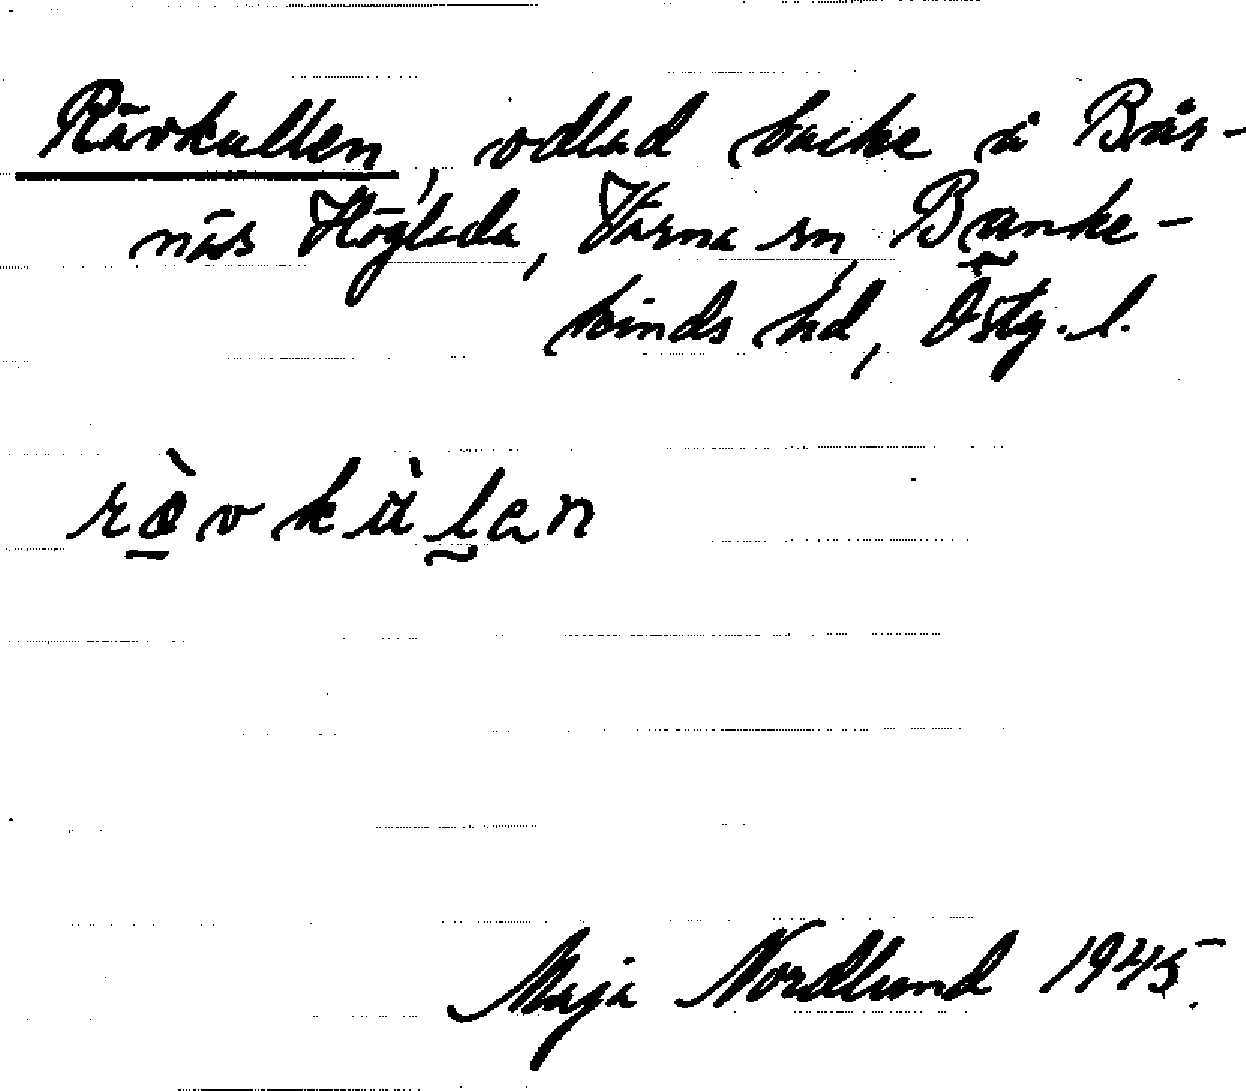 Rävkullen, odlad backe å Brås-
näs Höglada, Vårna sn, Banke-
kinds hd, Östg. l.
Maja Nordlund 1945.